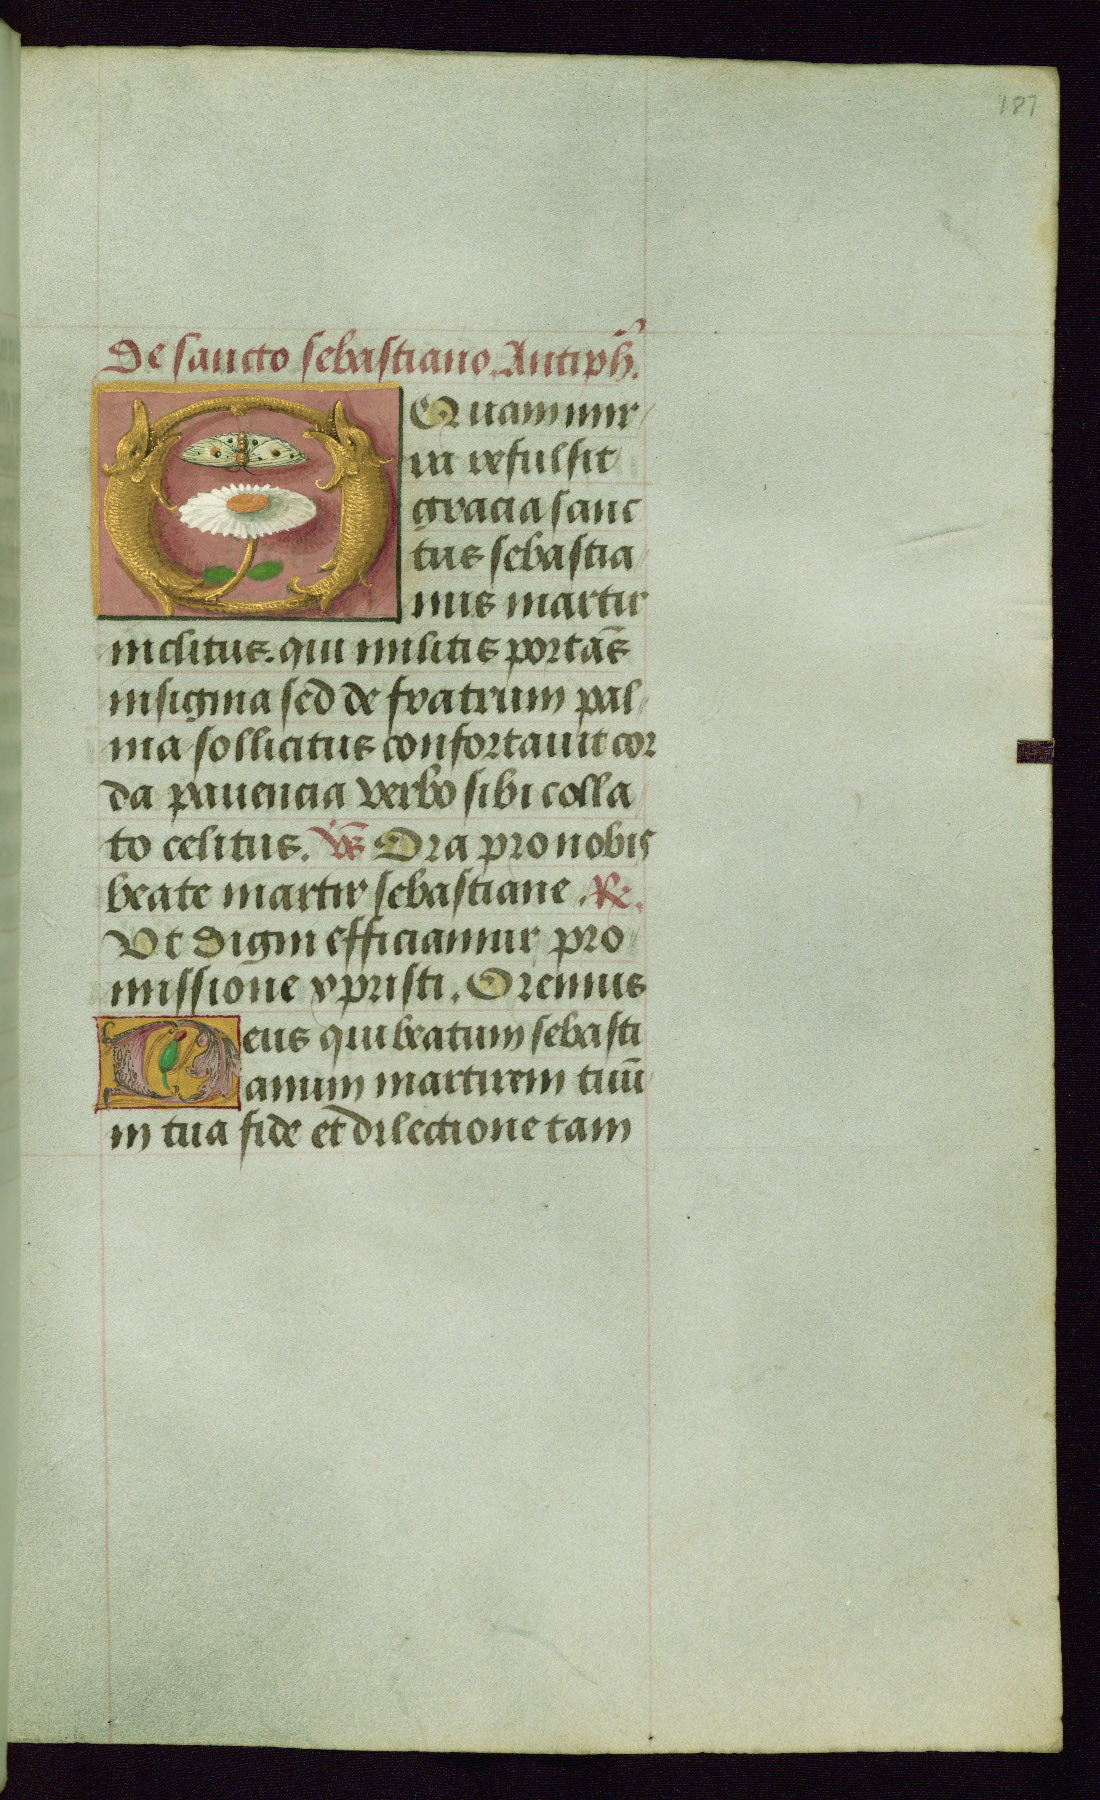 187
De sancto sebastiano. Antiph̄.
O Quam mir
in refulsit
gracia sanc
tus sebastia
nus martir
inclitus. qui militis portās
insignia sed de fratrum pal
ma sollicitus confortauit cor
da pauencia verbo sibi colla
to celitus. V̄s Ora pro nobis
beate martir sebastiane. R.
Vt digni efficiamur pro
missione xpristi. Oremus
Deus qui beatum sebasti
anum martirem tuū
in tua fide et dilectione tam